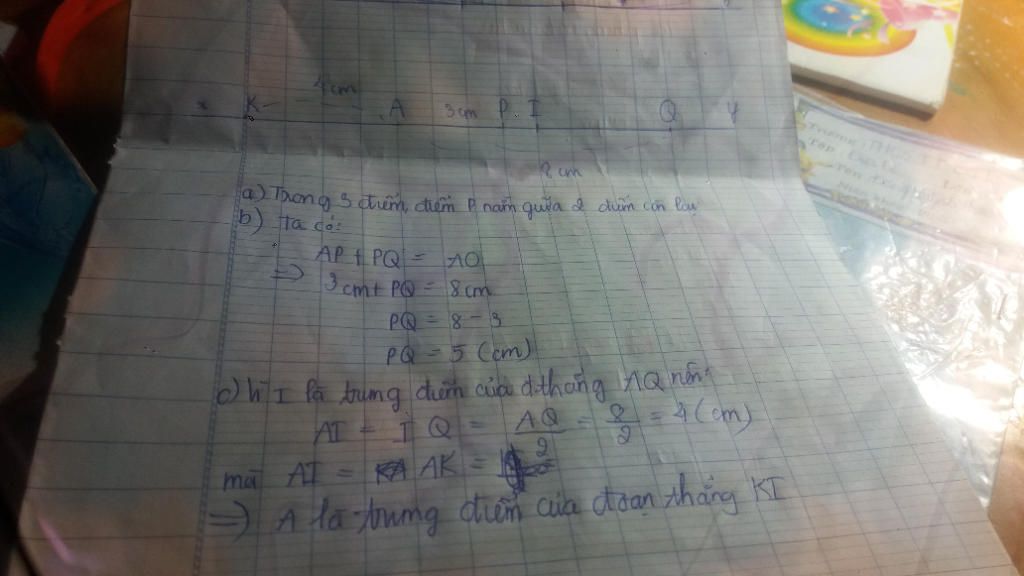 4cm
x K A 3cm P I Q y
8cm
a) Trong 3 điểm, điểm P nằm giữa 2 điểm còn lại
b) Ta có:
AP + PQ = AQ
=> 3cm + PQ = 8cm
PQ = 8 - 3
PQ = 5 (cm)
c) Vì I là trung điểm của đ thẳng AQ nên:
AI = IQ = AQ/2 = 8/2 = 4 (cm)
mà AI = AK =
=> A là trung điểm của đoạn thẳng KI